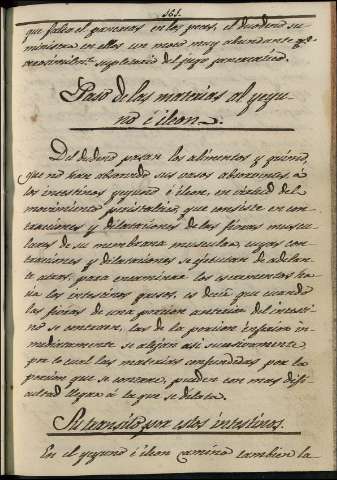 161.
que falta el pancreas en los peces, el duodeno su-
ministra en ellos un moco muy abundante q.e es
verosimilm.te supletorio del jugo pancreatico.
Paso de las materias al yeyu-
no é ileon.
Del duodeno pasan los alimentos y quimo,
que no han absorvido sus vasos absorventes á
los intestinos yeyuno é ileon, en virtud del
movimiento peristaltico, que consiste en con-
tracciones y dilataciones de las fibras muscu-
lares de su membrana musculosa, cuyas con-
tracciones y dilataciones se efectuan de adelan-
te atras, para encaminar los escrementos ha-
cia los intestinos gruesos, es decir que cuando
las fibras de una porcion anterior del intesti-
no se contraen, las de la porcion inferior in-
mediatamente se aflojan asi sucesivamente
por lo cual las materias comprendidas por la
porcion que se contrae, pueden con mas difi-
cultad llegar á la que se dilata.
Su transito por estos intestinos.
En el yeyuno é ileon camina tambien la